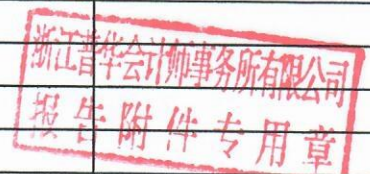 浙江普华会计师事务所有限公司
报告附件专用章